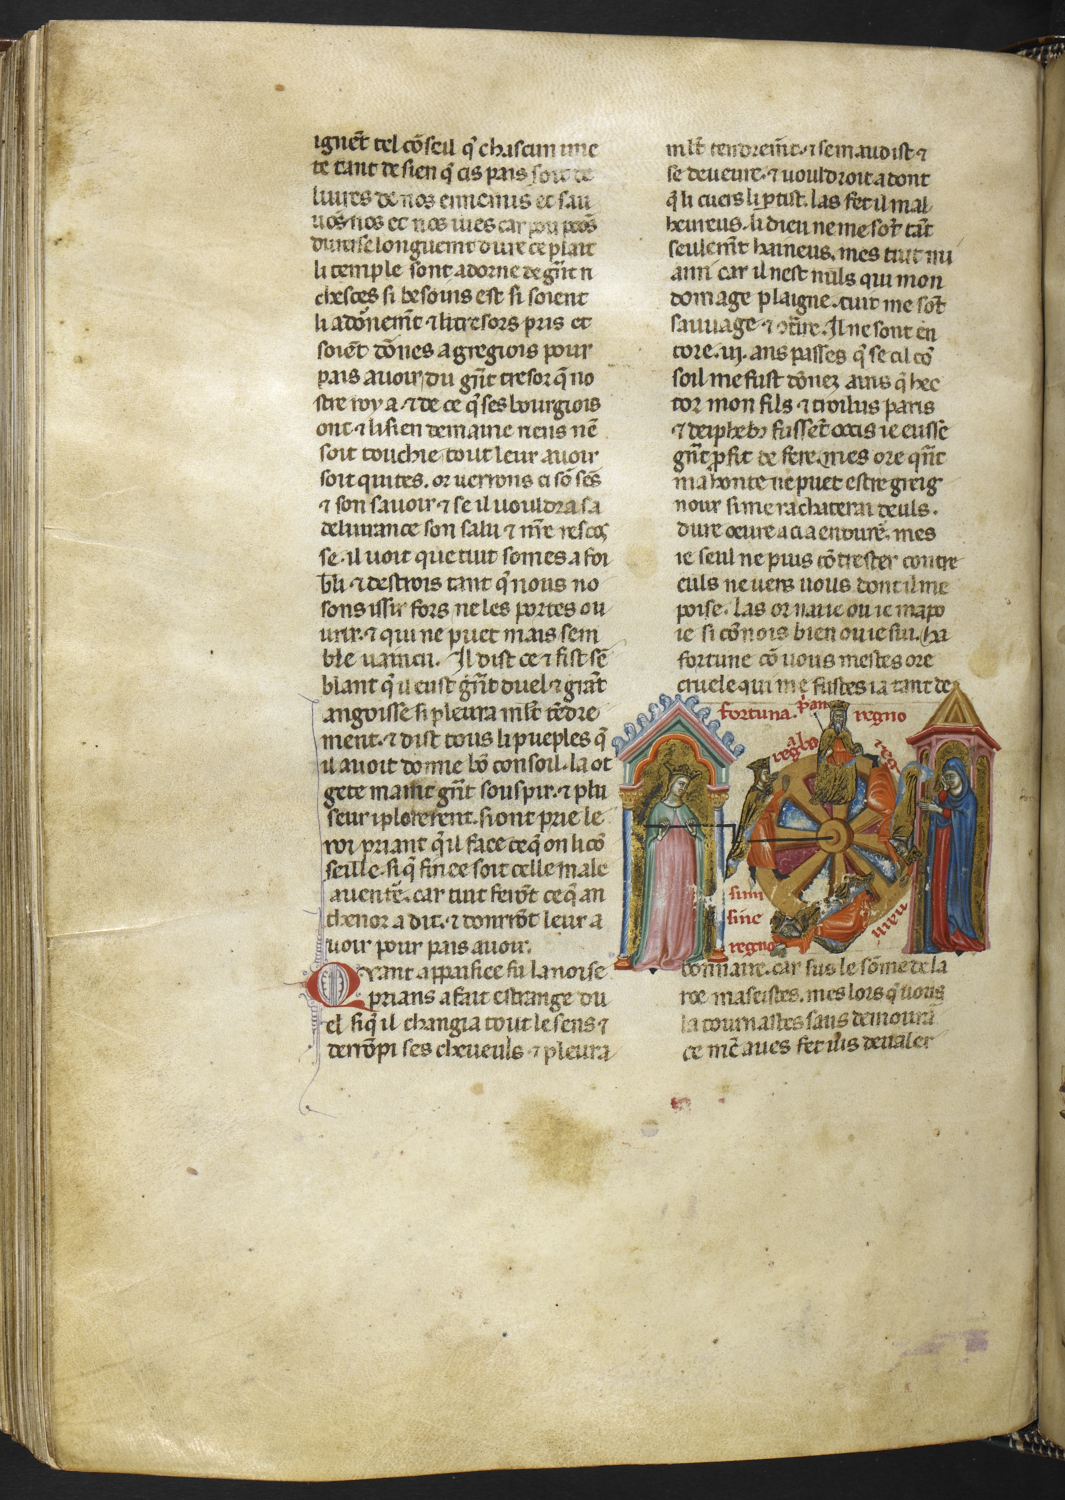 ignēt tel cōseil q̄ chascun me
te tant de sien q̄ cis pais soit de
liures de nos ennemis et sau
uōs nos et nos uies car
durise longuemt dure ce plait
li temple sont adorne de gn̄t ri
chesces si besoins est si soient
li adōnemt ⁊ li tresors pris et
soiēt dōnes a gregiois pour
pais auoir du gn̄t tresor q̄ no
stre roy a ⁊ de ce q̄ ses bourgiois
ont ⁊ li sien demaine neus nē
soit touchie tout leur auoir
soit quites. or uerrons ci sō sēs
⁊ son sauoir ⁊ se il uouldra sa
deliurance son salu ⁊ nr̄e rescos
se. il uoit que tuit somes a foi
bli ⁊ destrois tant q̄ nous no
sons issir fors ne les portes ou
urir. ⁊ qui ne puet mais sem
ble uaincu. Il dist ce ⁊ fist sē
blant q̄ il eust gn̄t duel ⁊ grāt
angoisse si pleura ml̄t tēdre
ment. ⁊ dist tous li pueples q̄
il auoit donne bō consoil. la ot
gete maint gn̄t souspir. ⁊ plu
seur i plorerent. si ont prie le
roi priant q̄ il face ce q̄ on li cō
seille. si q̄ fin ee soit celle male
auentē. car tuit ferōt ce q̄ an
thenor a dit. ⁊ donrrōt leur a
uoir pour pais auoir.
Qvant appaisiee fu la noise
prians a fait estrange du
el si q̄ il changia tout le sens ⁊
derrōpi ses cheueuls ⁊ pleura
ml̄t tendremt. ⁊ se maudist ⁊
se deueure. ⁊ uouldroit adont
q̄ li cuers li ptist. las fet il mal
heureus. li dieu ne me sōt tāt
seulemt haineus. mes tuit mi
ami car il nest nuls qui mon
domage plaigne. tuit me sōt
sauuage ⁊ ɔtr̄ire. Il ne sont en
core. iij. ans passes q̄ se cil cō
soil me fust dōnez auis q̄ hec
tor mon fils ⁊ troilus paris
⁊ deiphebꝰ fussēt occis ie eusse
gn̄t p̄fit de fere. mes ore qn̄t
ma honte ne puet estre greig
nour si me rachaterai deuls.
dure oeure a ci a endure. mes
ie seul ne puis cōtrester contre
euls ne uers uous dont il me
poise. las or narie ou ie mapo
ie si cōnois bien ou ie sui. ha
fortune cō uous mestes ore
cruele qui me fustes ia tant de
fortuna. p̄am regno
regnabo
reg
sum
sine
regno
bonnaire. car sus le sōme de la
roe maseistes. mes lors q̄ uous
la tournastes sans demourā
ce mē aues fet ius deualer